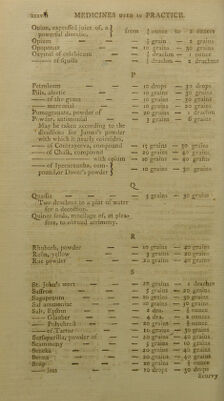 xxxvi MEDICINES USED IN PRACTICE.
Onion, expressed juice of, a } from ½ ounce to 2 ounces
powerful diuretic,
Opium — — — grain — grains
Opoponax — — 10 grains — 30 grains
Oxymel of colchicum — drachm — 1 ounce
—— of squills — drachm — 2 drachms
P
Petroleum — — 10 drops — 30 drops
Pills, aloetic — — 10 grains — 30 grains
—— of the gums — — 10 grains — 30 grains
—— mercurial — — 10 grains — grains
Pomegranate, powder of — drachm — 1 drachm
Powder, antimonial — — 3 grains — 6 grains
May be taken according to the
directions for James's powder
with which it nearly coincides.
—— of Contrayerva, compound — 15 grains — 30 grains
—— of Chalk, compound — 20 grains — 40 grains
—— with opium — 20 grains — 40 grains
—— of Ipecacuanha, com- } 10 grains — 30 grains
pound, or Dover's powder
Q
Quassia — — 5 grains — 30 grains
Two drachms to a pint of water
for a decoction.
Quince seeds, mucilage of, at plea-
sure, to obtund acrimony.
R
Rhubarb, powder — — 20 grains — 40 grains
Resin, yellow — — 3 grains — 20 grains
Rue powder — — 20 grains — 40 grains
S
St. John's wort — — 20 grains — 1 drachm
Saffron — — 5 grains — 20 grains
Sagapenum — — 10 grains — 30 grains
Sal ammoniac — — 10 grains — 30 grains
Salt, Epsom — — 4 drs. — ounce
—— Glauber — — 4 drs. — ounce
—— Polychrest — — grains — ounce
—— of Tartar — — 10 grains — 30 grains
Sarsaparilla, powder of — 20 grains — 40 grains
Scammony — — 5 grains — 10 grains
Seneka — — 20 grains — 40 grains
Senna — — 20 grains — 40 grains
Soap — — 20 grains — grains
—— lees — — 10 drops — 30 drops
Scurvy